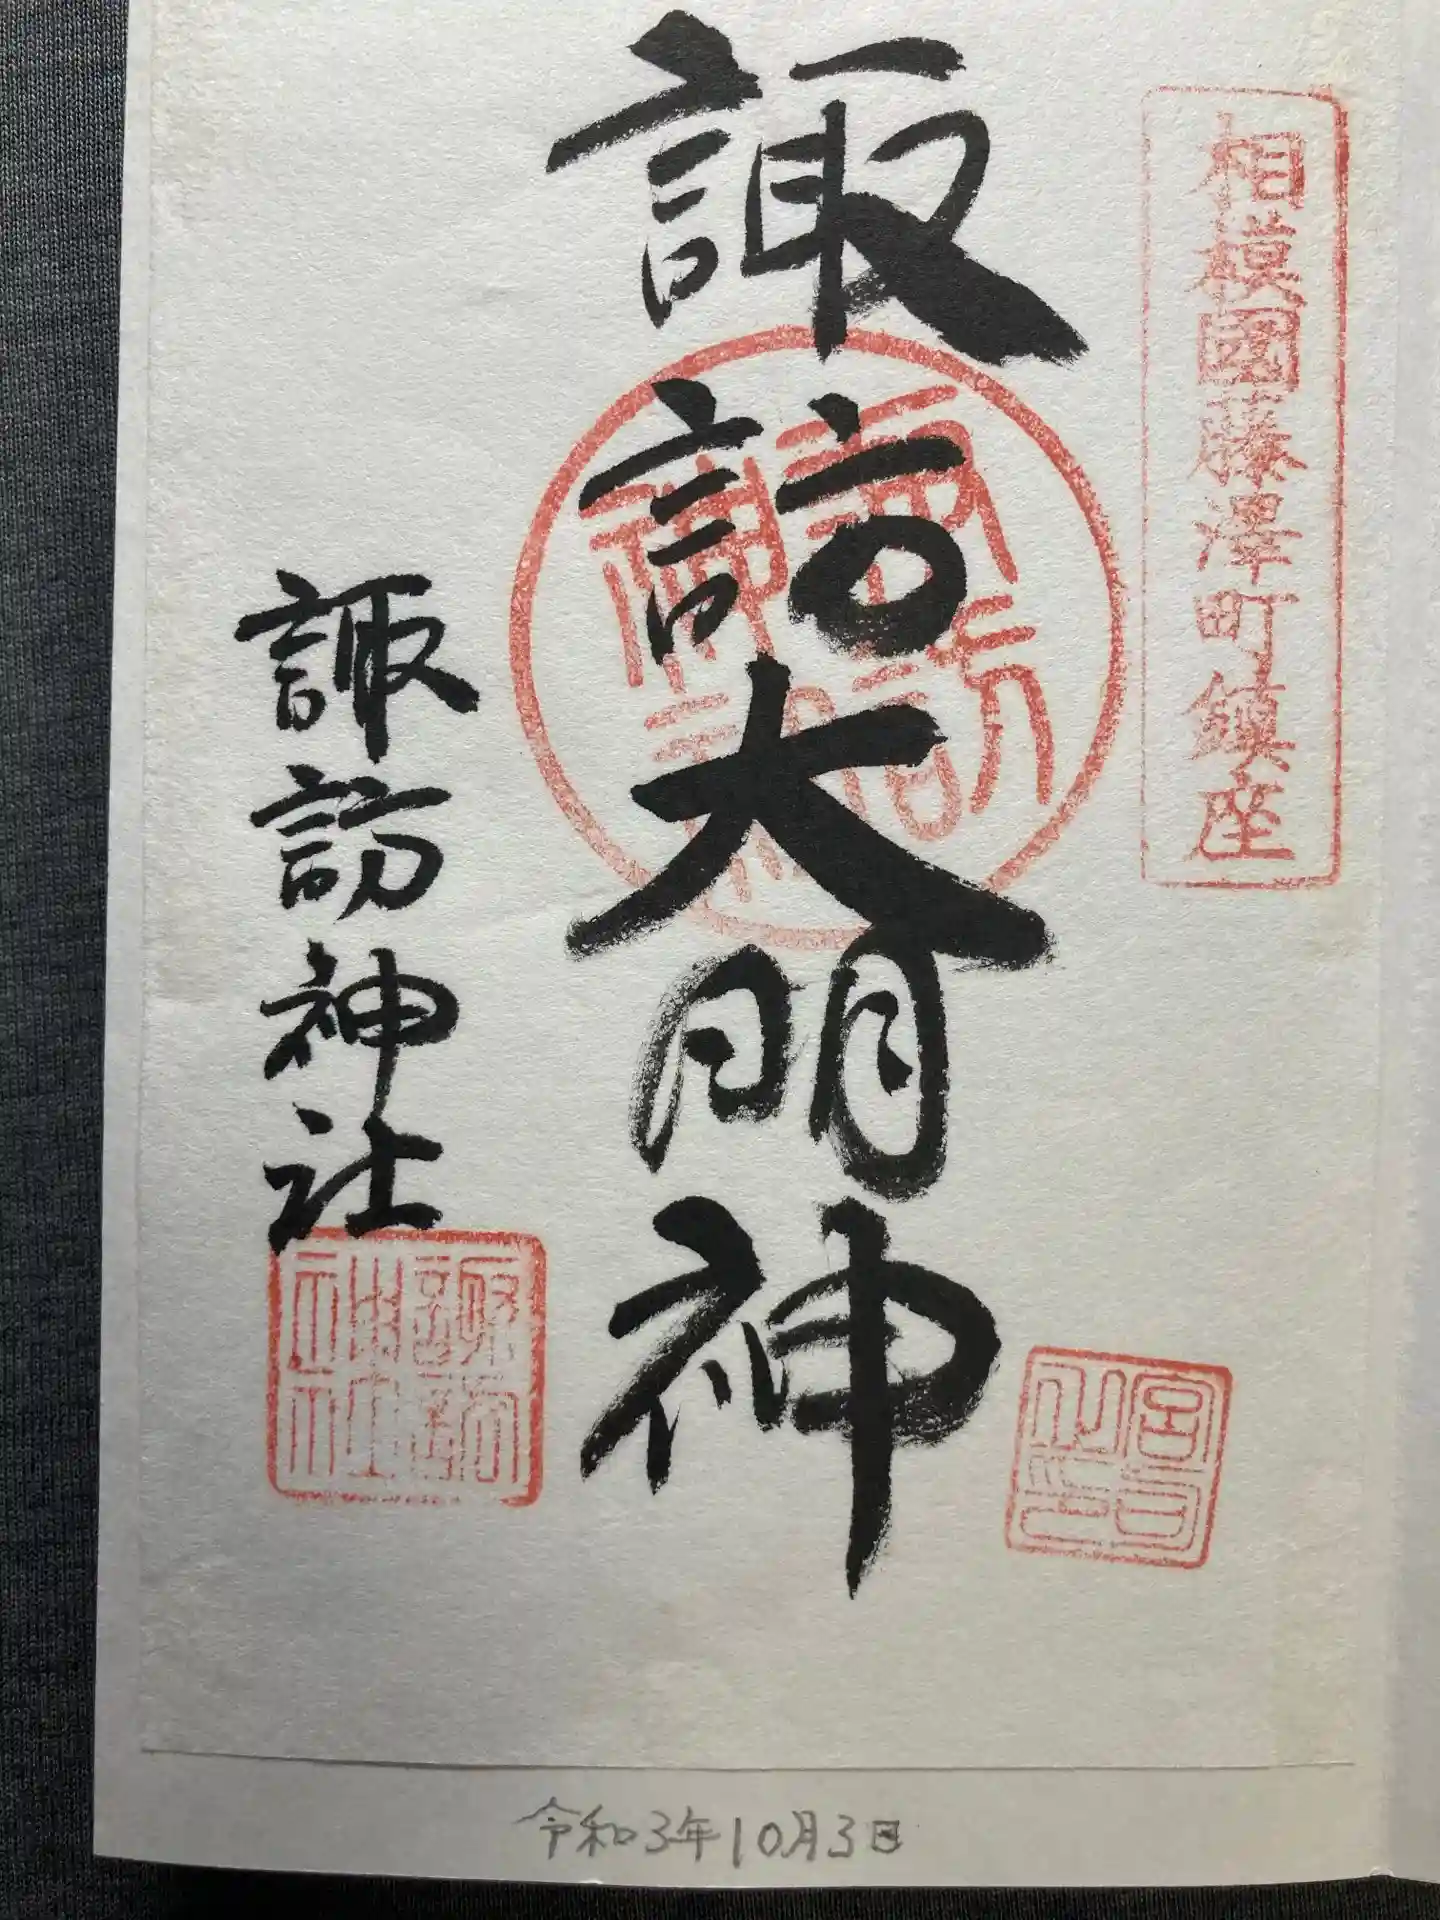 相模國藤澤町鎮座
諏訪大明神
諏訪神社
諏訪神社
宮司之印
令和3年10月3日